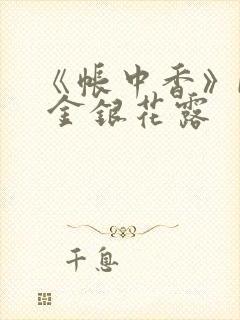 《帐中香》
金银花露
千息